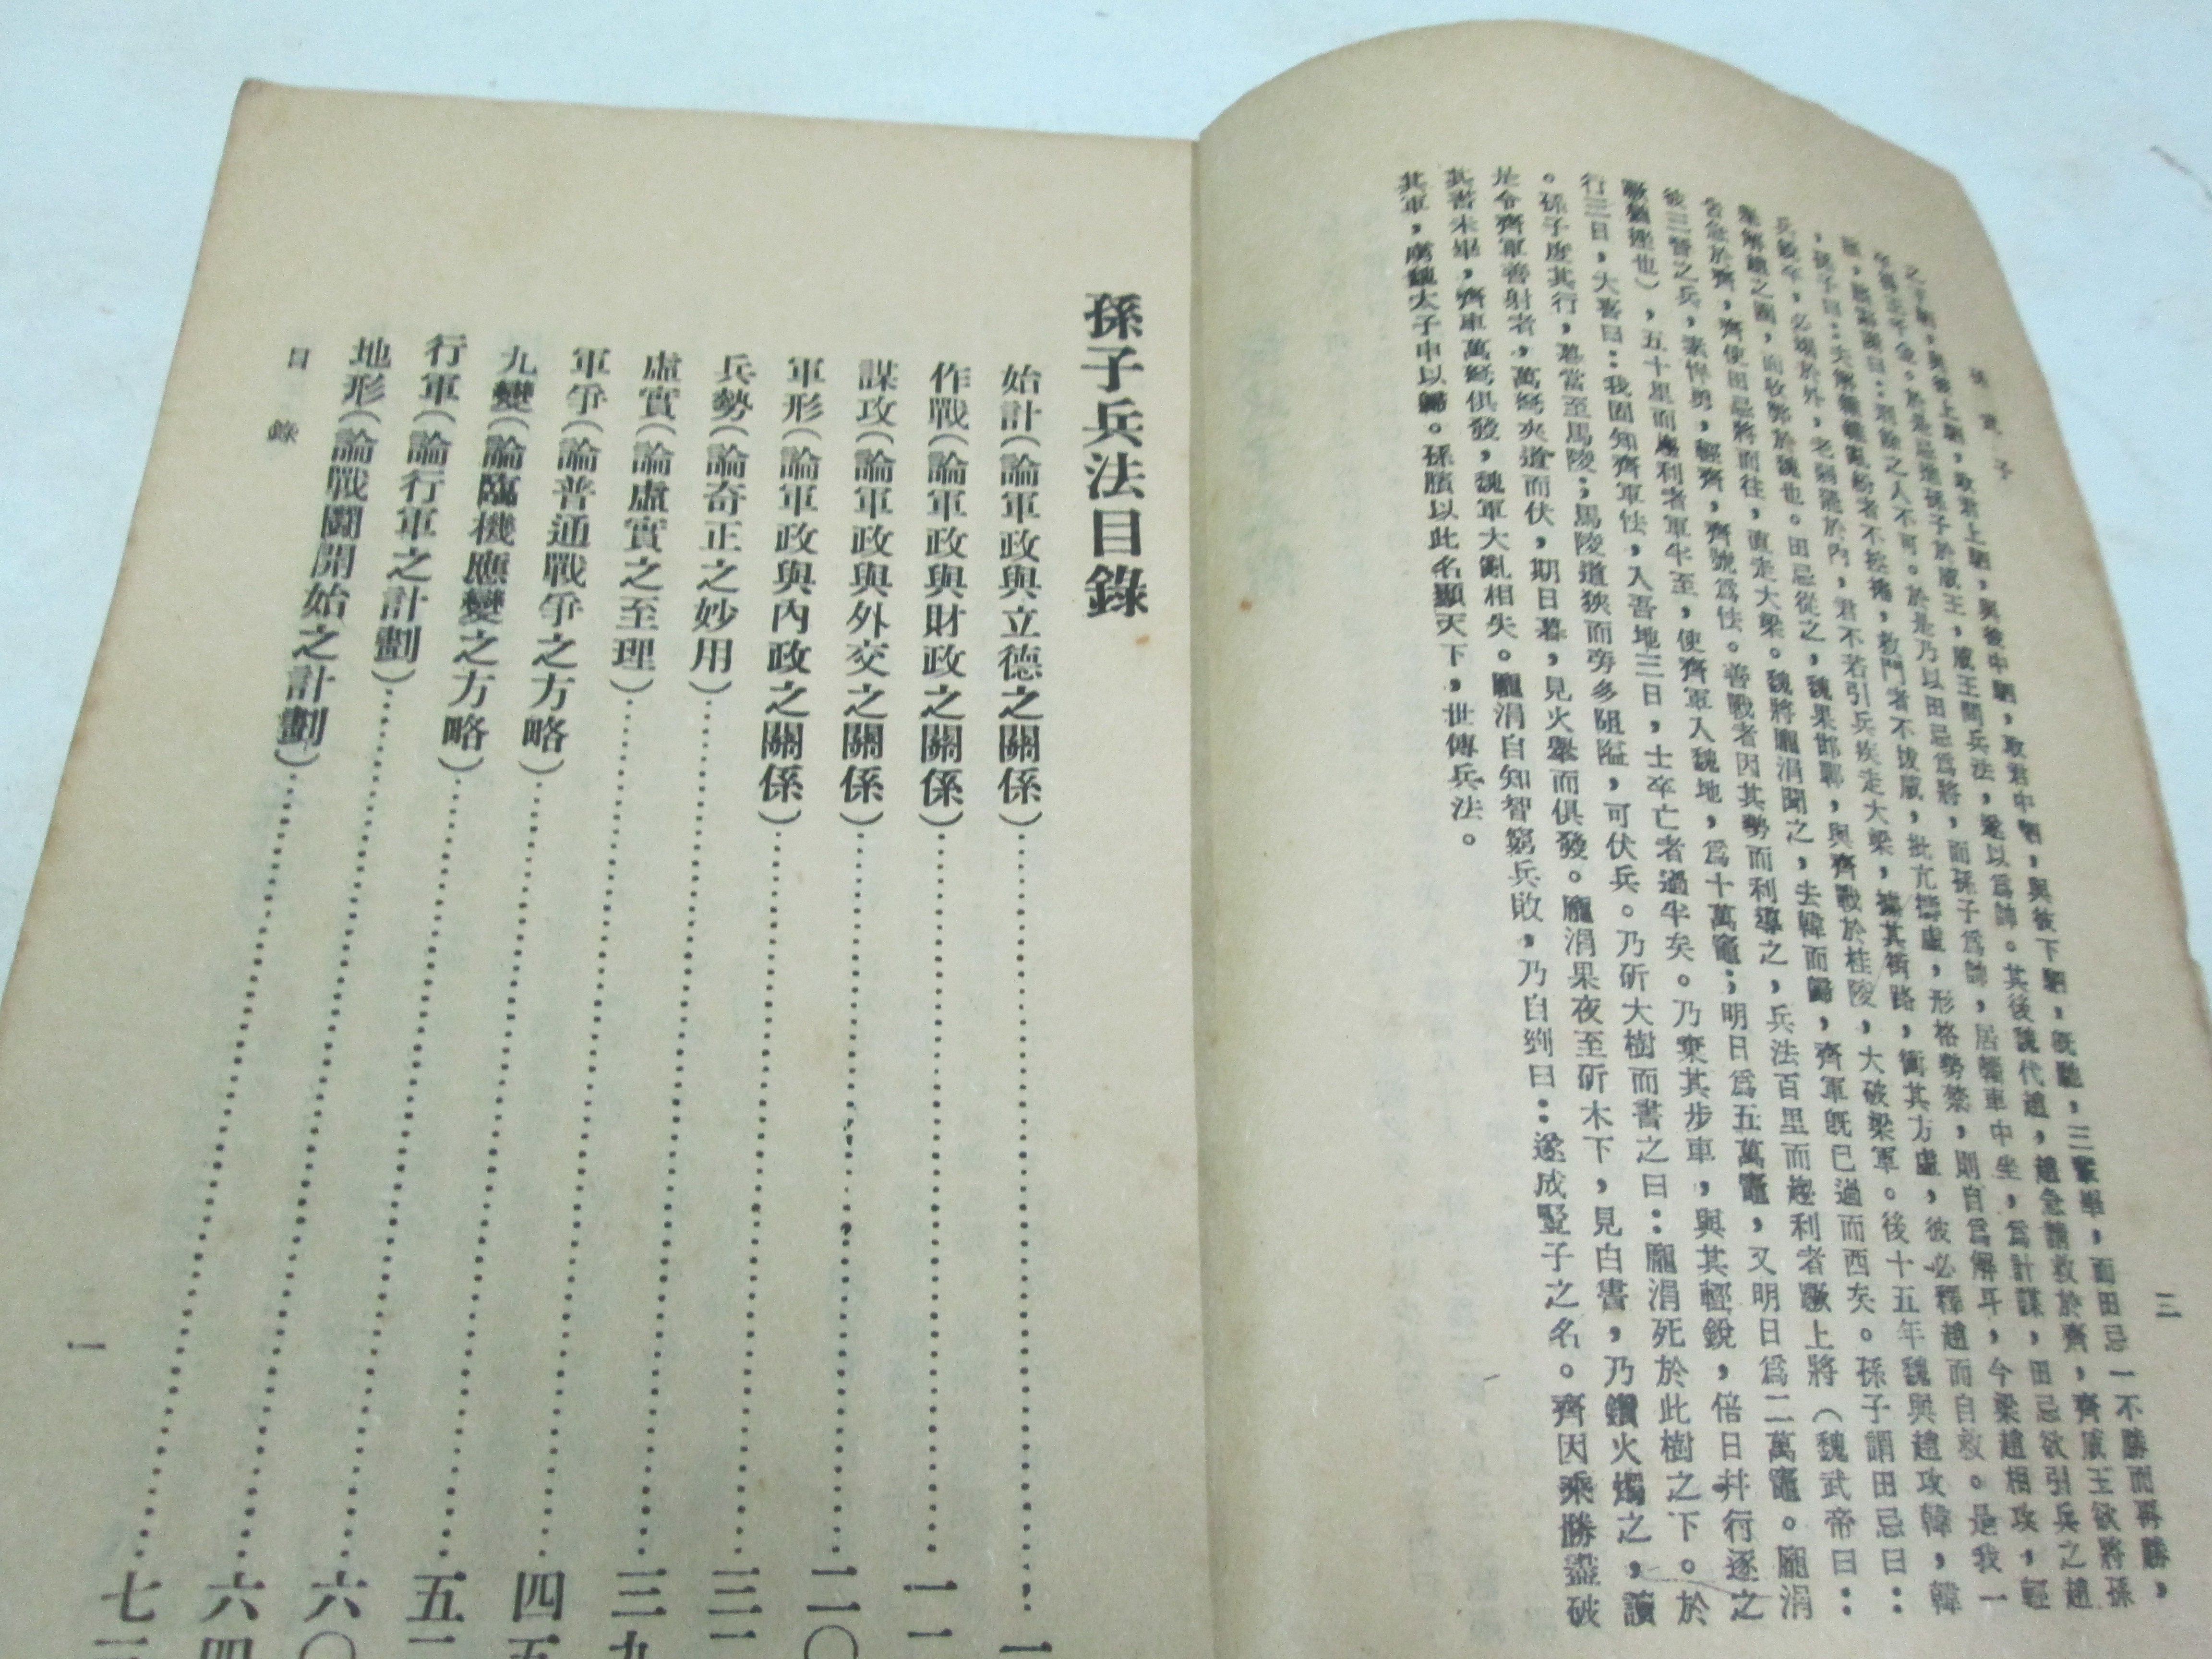 孫武子
三
之下駟，與彼上駟，取君上駟，與彼中駟，取君中駟，與彼下駟，既馳三輩畢，而田忌一不勝而再勝，
卒得王千金。於是忌進孫子於威王，威王問兵法，遂以爲師。其後魏伐趙，趙急請救於齊，齊威王欲將孫
臏，臏辭謝曰：刑餘之人不可。於是乃以田忌爲將，而孫子爲師，居輜車中坐，爲計謀，田忌欲引兵之趙
，孫子曰：夫解雜亂紛者不控捲，救鬥者不搏撠，批亢擣虛，形格勢禁，則自爲解耳，今梁趙相攻，輕
兵銳卒，必竭於外，老弱罷於內，君不若引兵疾走大梁，據其街路，衝其方虛，彼必釋趙而自救。是我一
舉解趙之圍，而收弊於魏也。田忌從之，魏果去邯鄲，與齊戰於桂陵，大破梁軍。後十五年魏與趙攻韓，韓
告急於齊，齊使田忌將而往，直走大梁。魏將龐涓聞之，去韓而歸，齊軍既已過而西矣。孫子謂田忌曰：
彼三晉之兵，素悍勇，輕齊，齊號爲怯。善戰者因其勢而利導之，兵法百里而趨利者蹶上將（魏武帝曰：
蹶猶挫也），五十里而趨利者軍半至，使齊軍入魏地，爲十萬竈；明日爲五萬竈，又明日爲二萬竈。龐涓
行三日，大喜曰：我固知齊軍怯，入吾地三日，士卒亡者過半矣。乃棄其步車，與其輕銳，倍日并行逐之
。孫子度其行，暮當至馬陵；馬陵道狹而旁多阻隘，可伏兵。乃斫大樹而書之曰：龐涓死於此樹之下。於
是令齊軍善射者，萬弩夾道而伏，期日暮，見火舉而俱發。龐涓果夜至斫木下，見白書，乃鑽火燭之，讀
其書未畢，齊軍萬弩俱發，魏軍大亂相失。龐涓自知智窮兵敗，乃自剄曰：遂成豎子之名。齊因乘勝盡破
其軍，虜魏太子申以歸。孫臏以此名顯天下，世傳兵法。
孫子兵法目錄
始計（論軍政與立德之關係）……一
作戰（論軍政與財政之關係）……一二
謀攻（論軍政與外交之關係）……二〇
軍形（論軍政與內政之關係）……三二
兵勢（論奇正之妙用）……三九
虛實（論虛實之至理）……四五
軍爭（論普通戰爭之方略）……五二
九變（論臨機應變之方略）……六〇
行軍（論行軍之計劃）……六四
地形（論戰鬭開始之計劃）……七
目錄
一